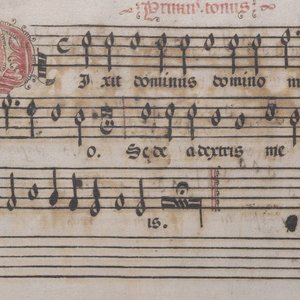 Primus tonus
Dixit dominus domino m
o. Sede a dextris me
is.